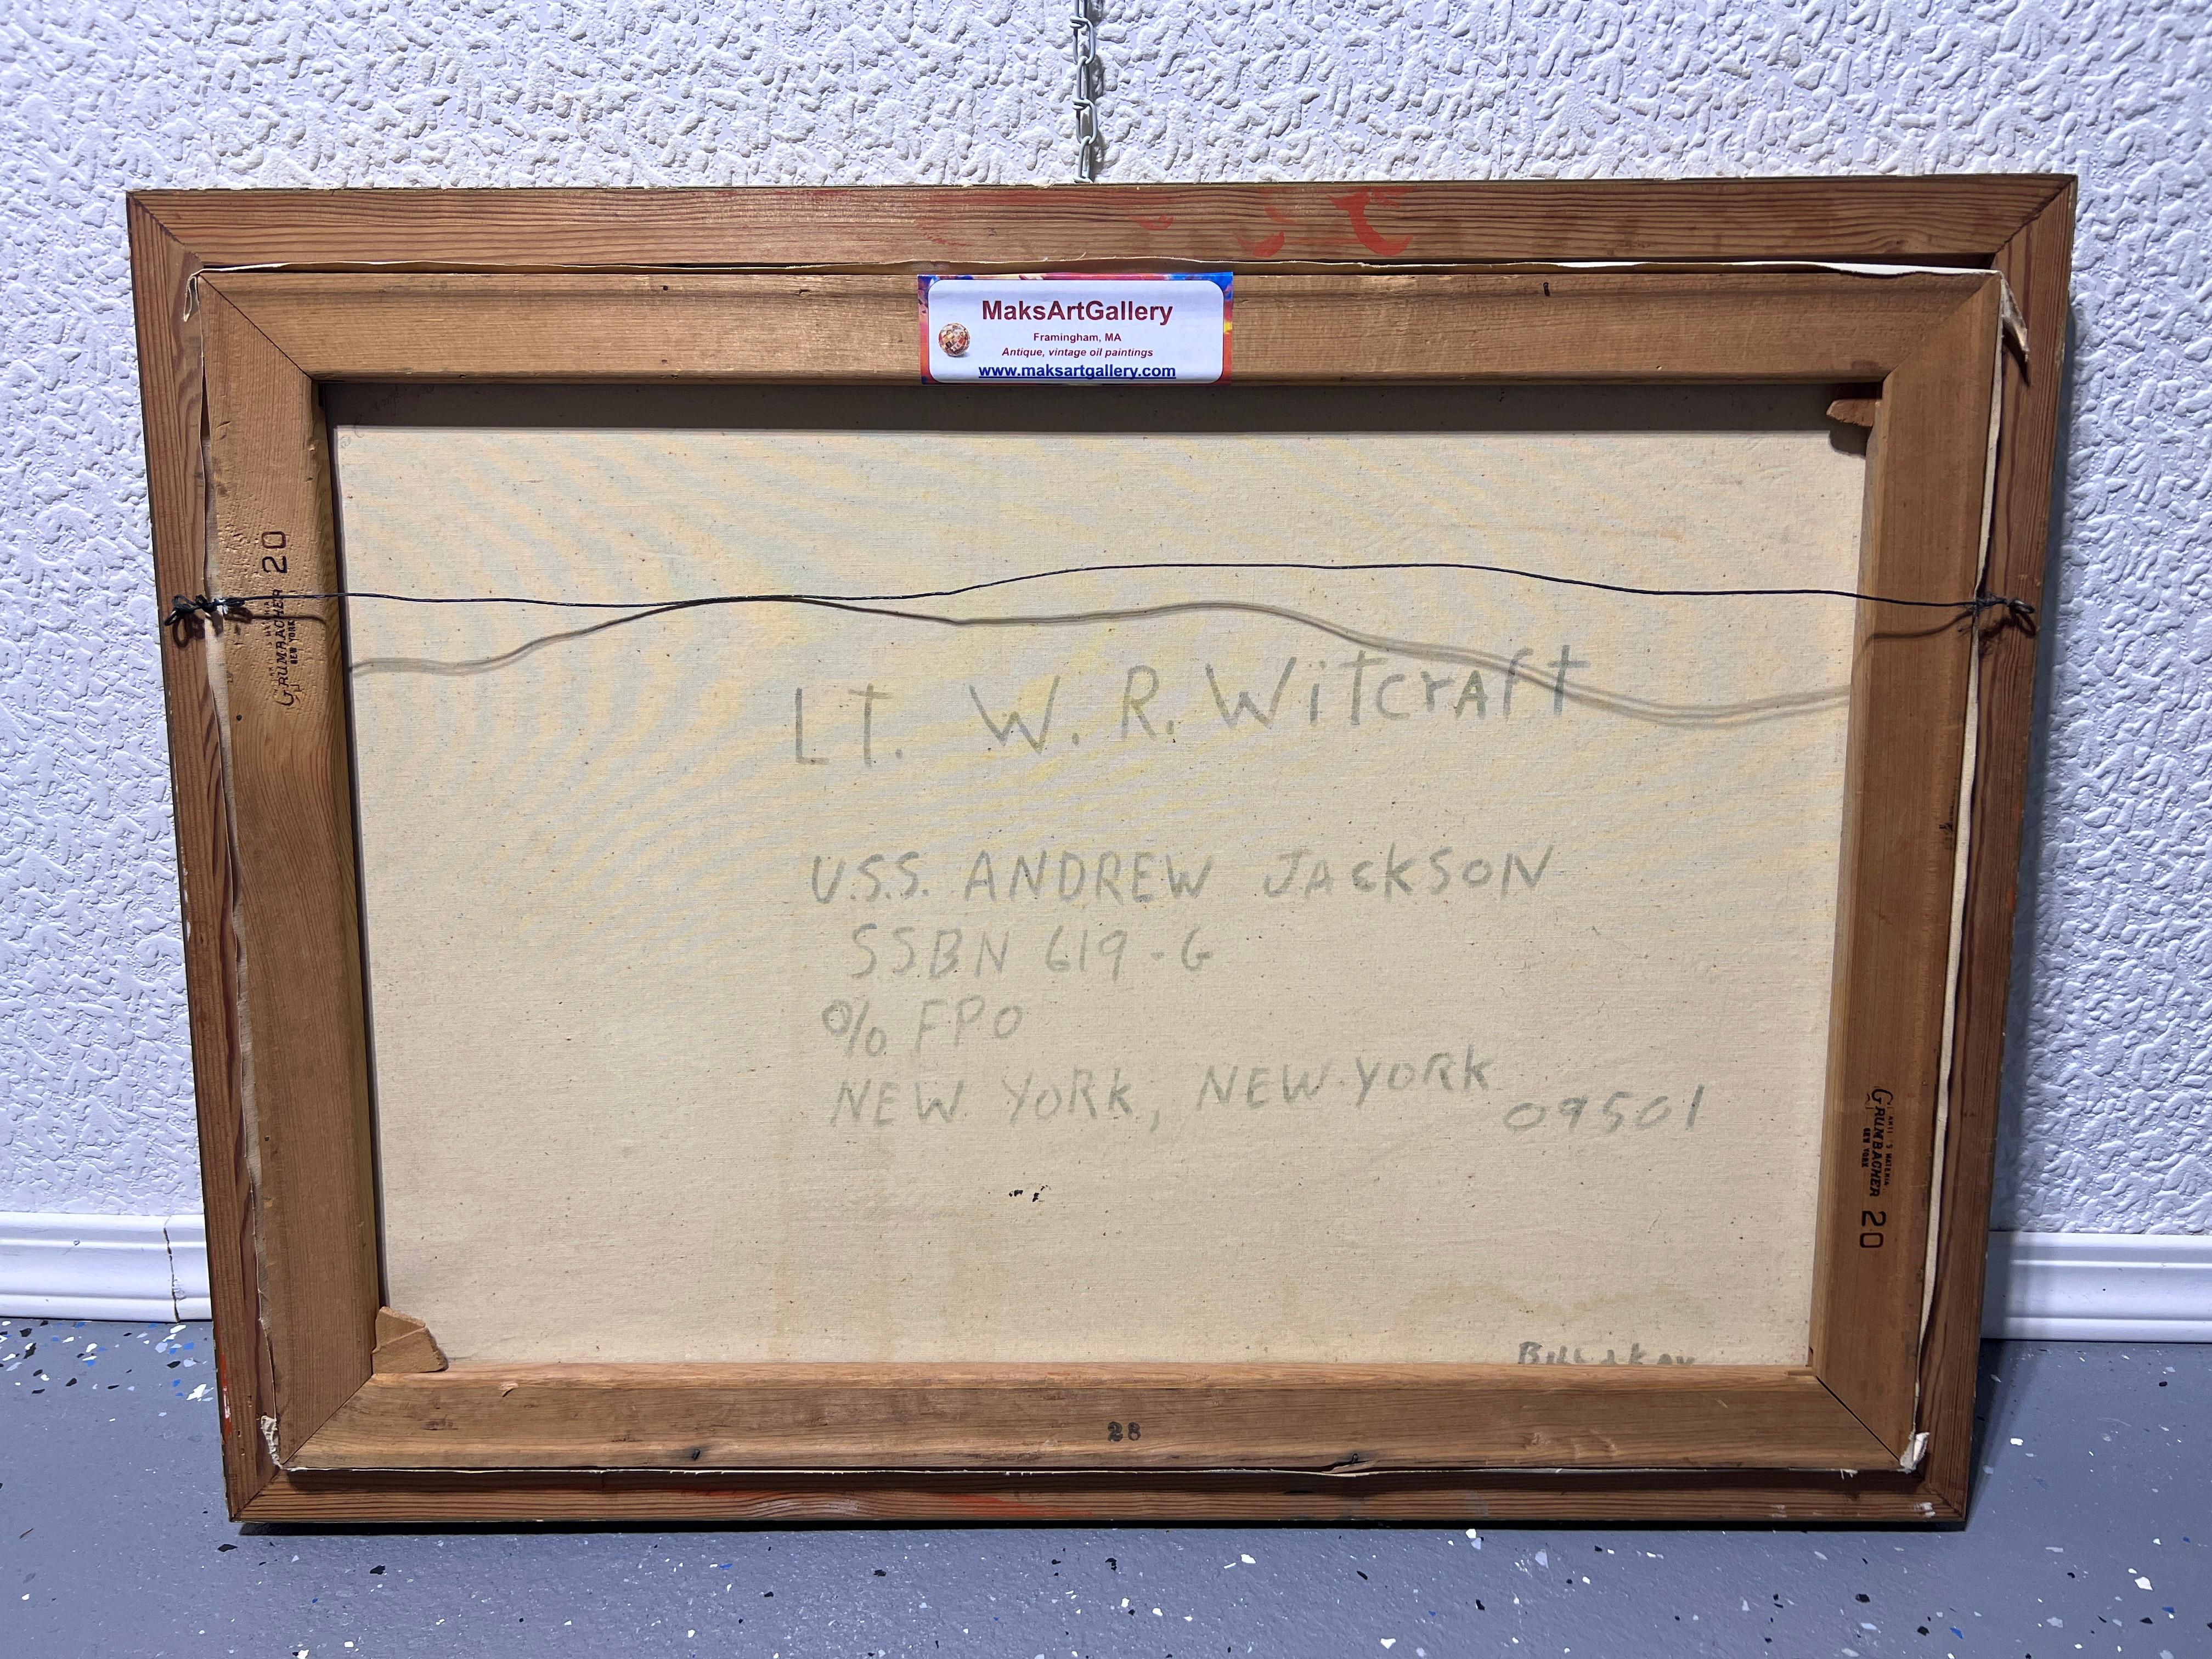 MaksArtGallery
Framingham, MA
Antique, vintage oil paintings
www.maksartgallery.com
GRUMBACHER 20
NEW YORK
LT. W. R. WitcrAft
U.S.S. ANDREW JACKSON
SSBN 619-G
% FPO
NEW YORK, NEW YORK 09501
GRUMBACHER 20
NEW YORK
28